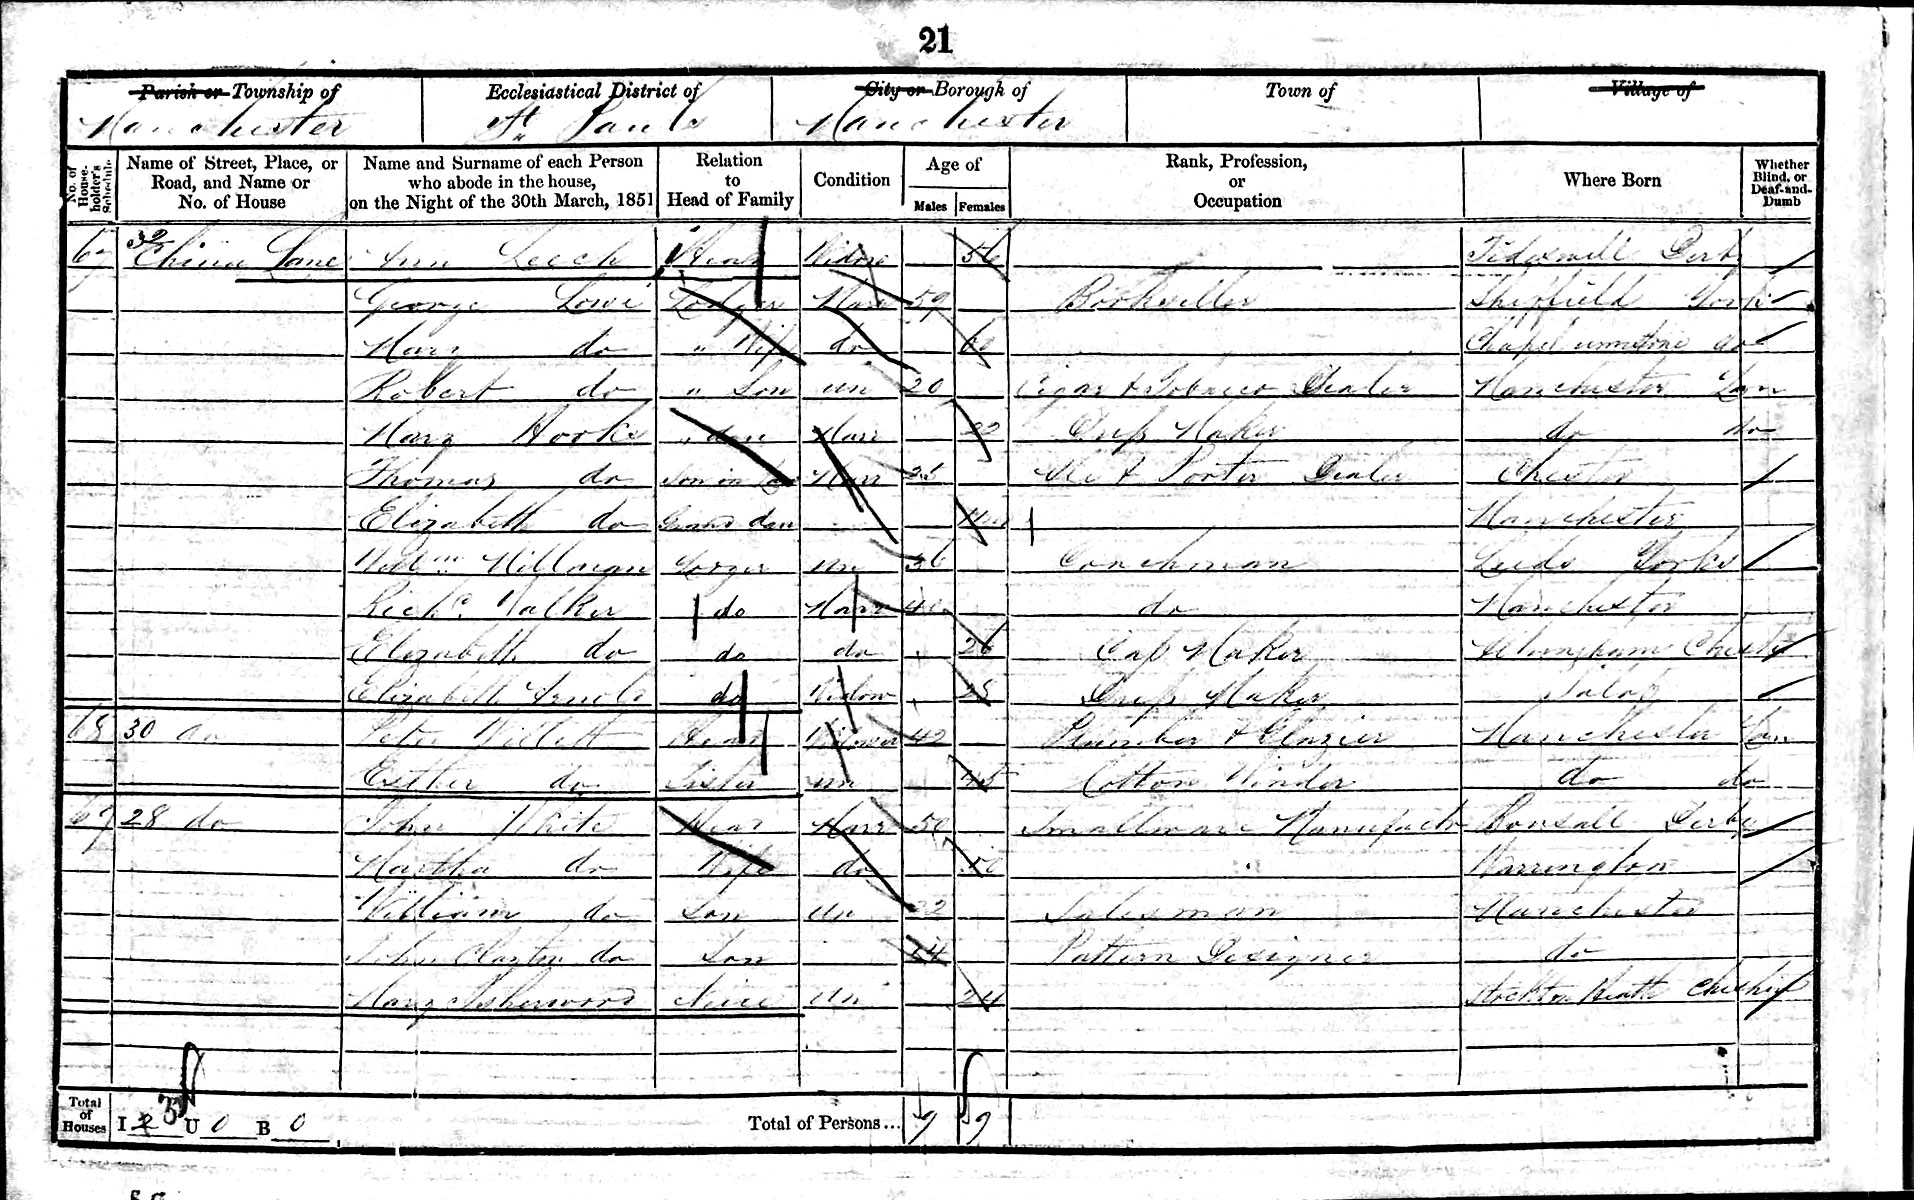 21
Parish or Township of Ecclesiastical District of City or Borough of Town of Village of
Manchester St. Pauls Manchester
No. of House-holder's Schedule
Name of Street, Place, or Road, and Name or No. of House
Name and Surname of each Person who abode in the house, on the Night of the 30th March, 1851
Relation to Head of Family
Condition
Age of
Males Females
Rank, Profession, or Occupation
Where Born
Whether Blind, or Deaf-and-Dumb
67 32 China Lane Ann Leech Head Widow 56 Derby
George Lowe Lodger Marr 59 Bookseller Sheffield York
Mary do " Wife do do
Robert do " Son un 20 Cigar & Tobacco Dealer Manchester Lan
Mary Hooks " dau Marr 22 Dress Maker do do
Thomas do Son in Law Marr Ale & Porter Dealer Chester
Elizabeth do Grand dau Manchester
Willm Lodger un 36 Coachman Leeds Yorks
Richd Walker do Marr do Manchester
Elizabeth do do do 26 Cap Maker
Elizabeth Arnold do Widow Dress Maker
68 30 do Peter Willett Head Widower 42 Plumber & Glazier Manchester Lan
Esther do Sister un 45 Cotton Winder do do
69 28 do John White Head Marr 50 Smallware Manufactr Bonsall Derby
Martha do Wife do Warrington
William do Son Un 22 Salesman Manchester
John Clayton do Son 14 Pattern Designer do
Mary Isherwood Niece Un 24 Stockton Heath Cheshire
Total of Houses I 3 U 0 B 0 Total of Persons... 9 9